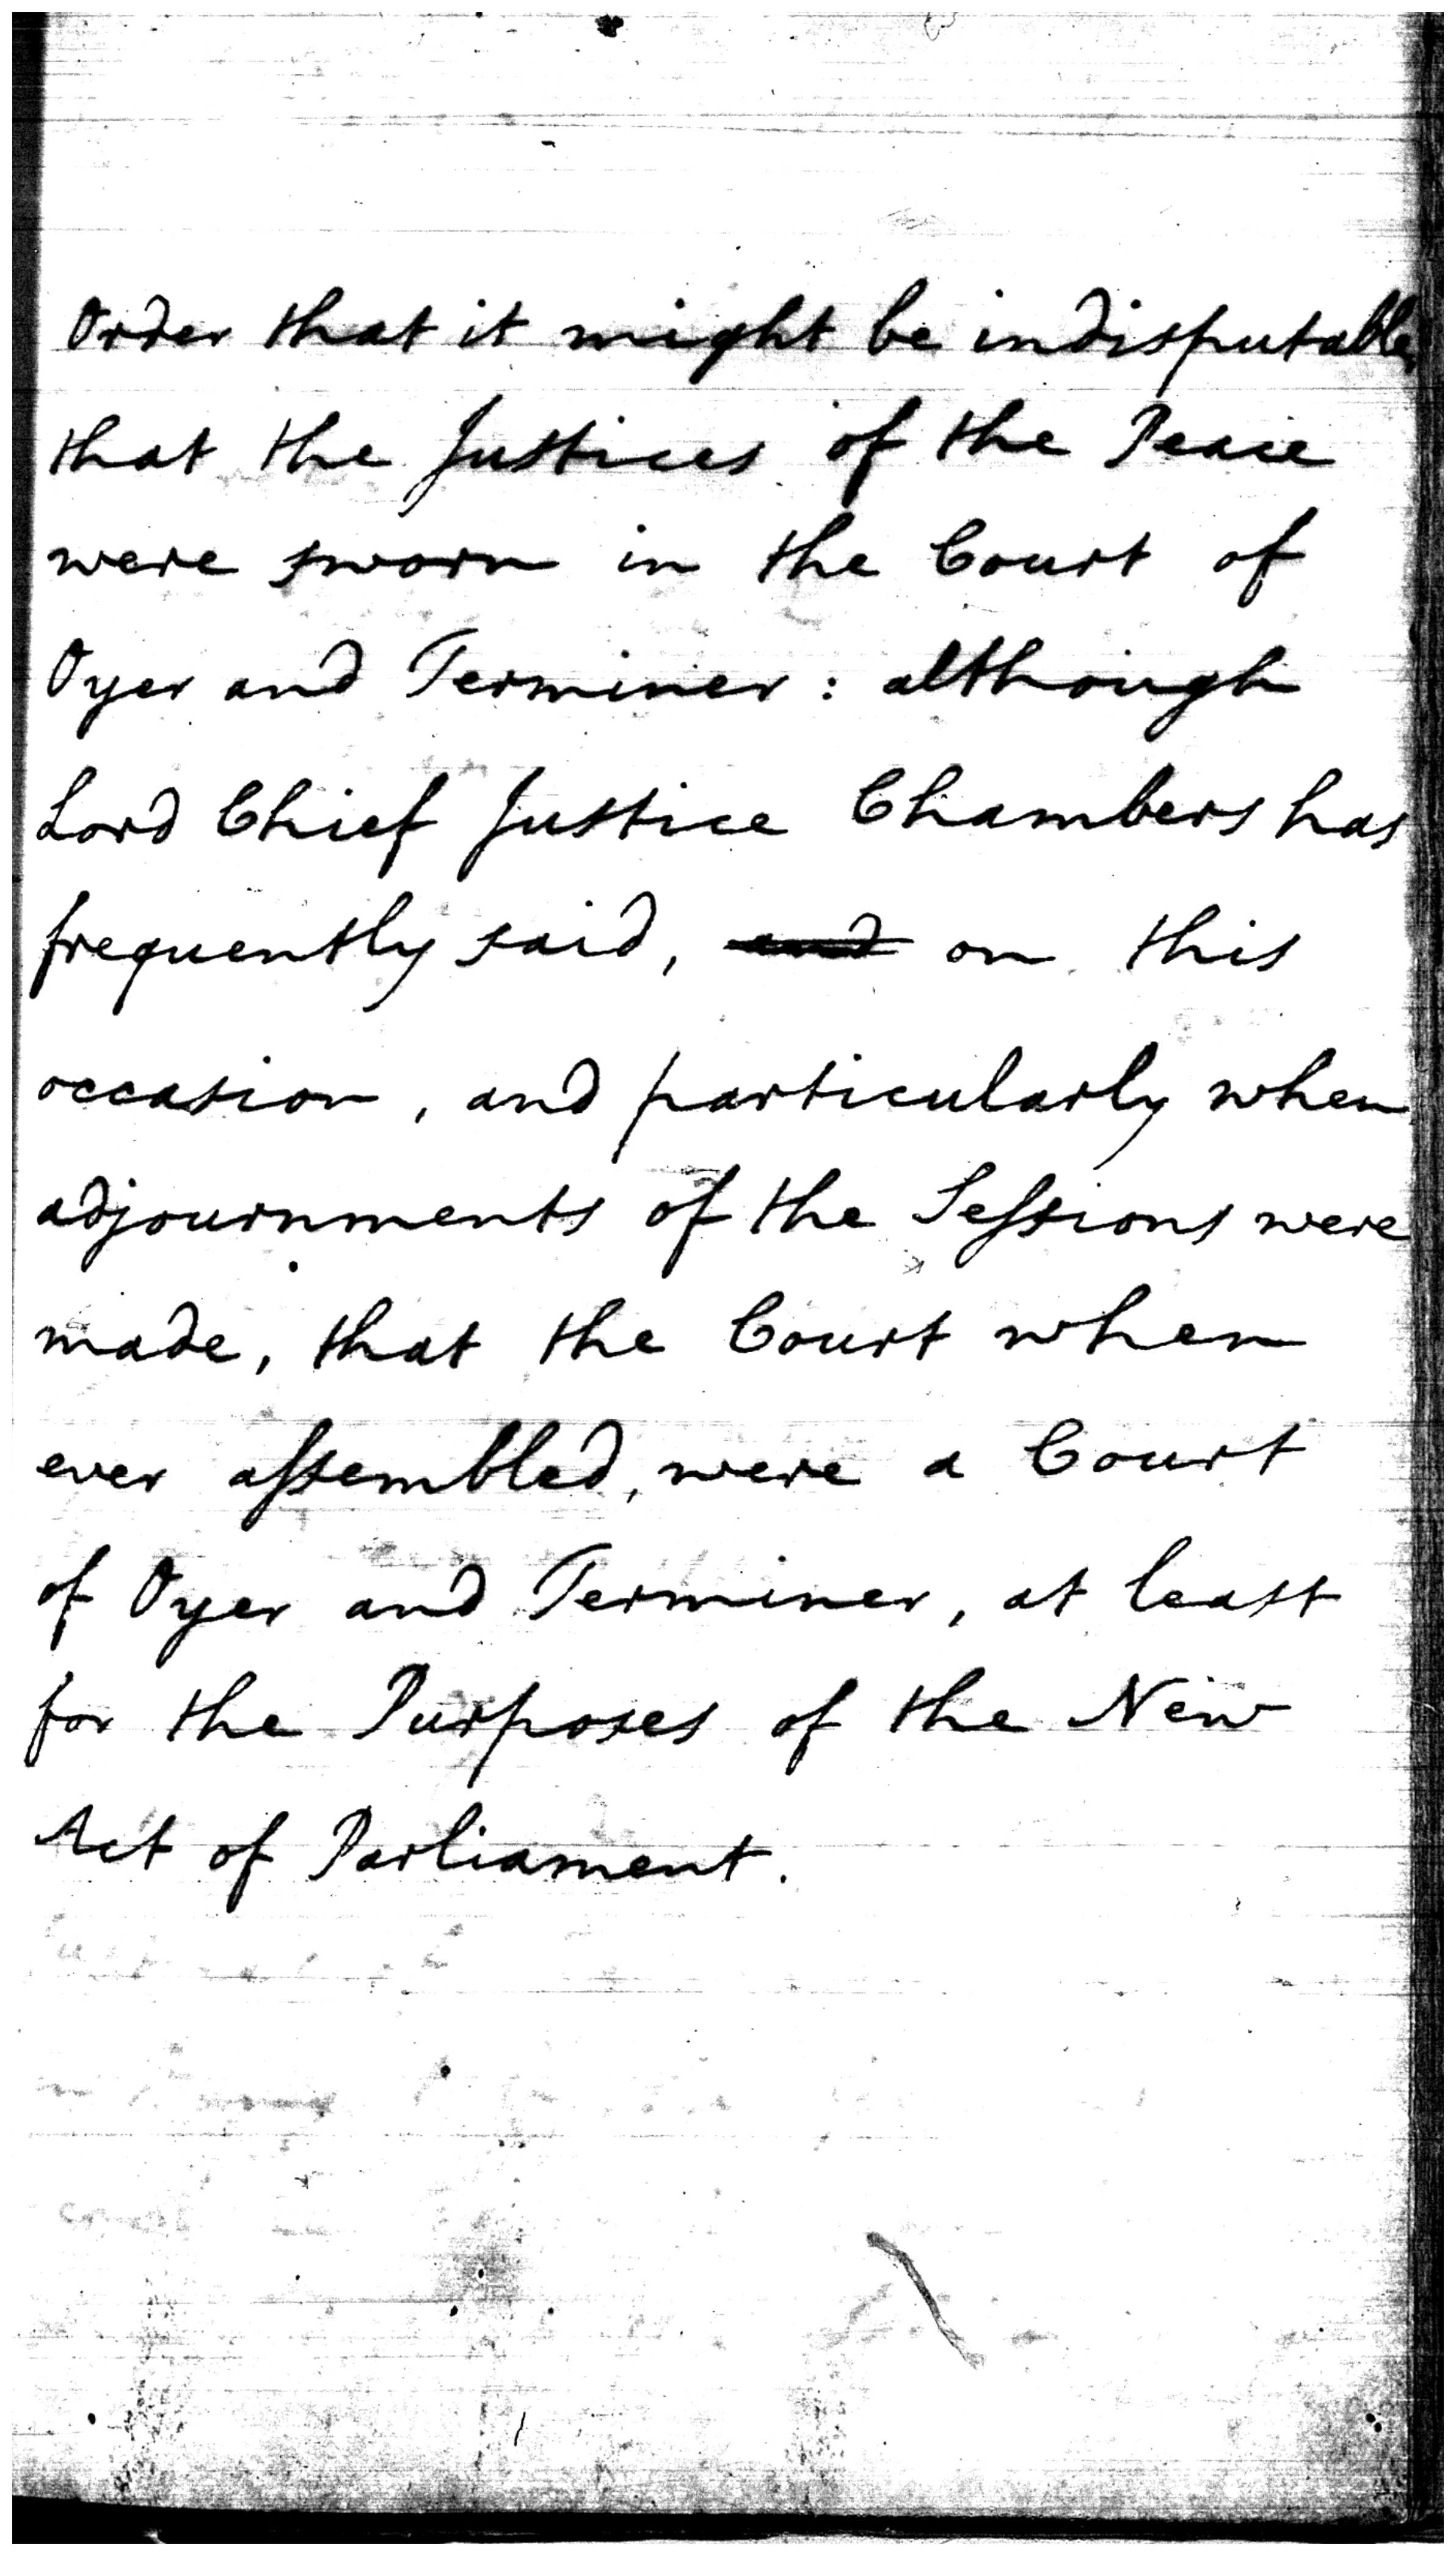 Order that it might be indisputable,
that the Justices of the Peace
were sworn in the Court of
Oyer and Terminer : although
Lord Chief Justice Chambers has
frequently said, and on this
occasion, and particularly when
adjournments of the Seſsions were
made, that the Court when
ever aſsembled, were a Court
of Oyer and Terminer, at least
for the Purposes of the New
Act of Parliament.